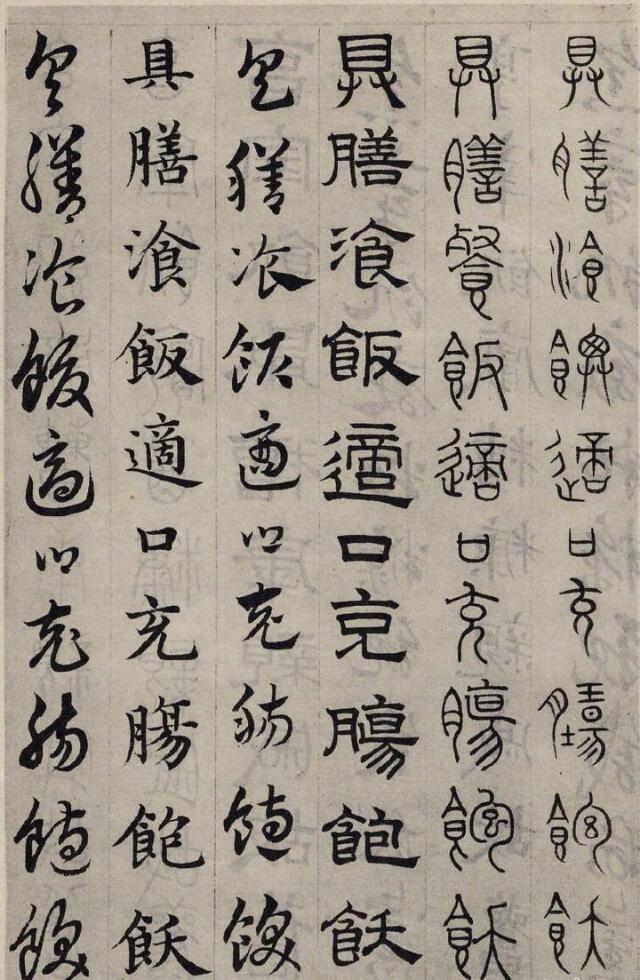 具膳湌飯適口充膓飽飫
具膳餐飯適口充膓飽飫
具膳湌飯適口充膓飽飫
具膳湌飯適口充膓飽飫
具膳湌飯適口充膓飽飫
具膳湌飯適口充膓飽飫